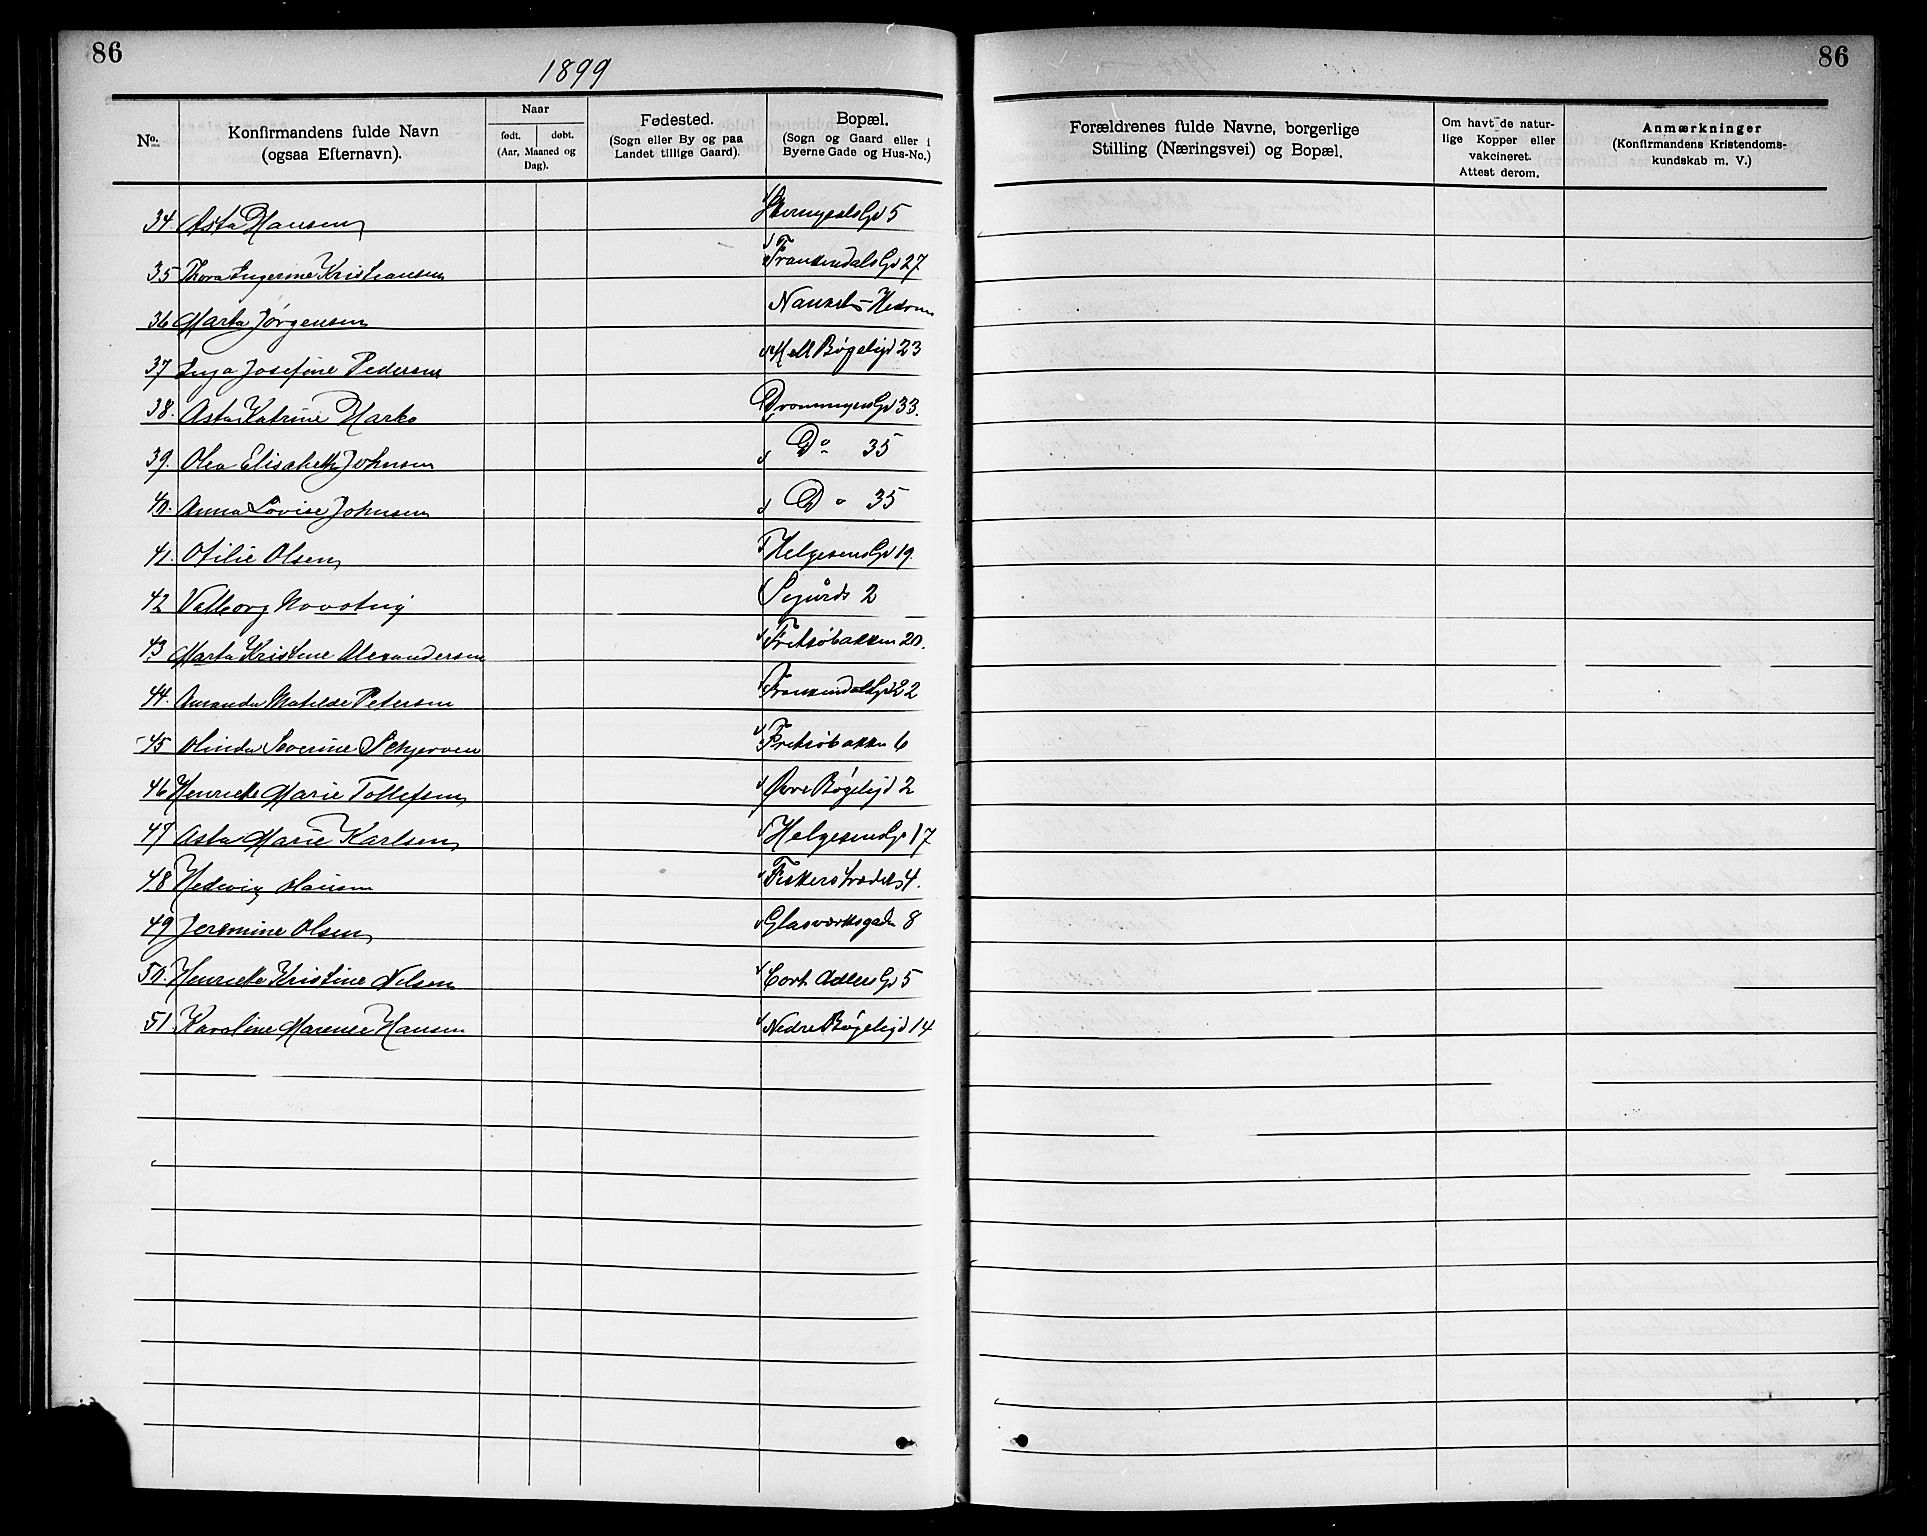 86
1899
No.
Konfirmandens fulde Navn
(ogsaa Efternavn).
Naar
født. døbt.
(Aar, Maaned og
Dag).
Fødested.
(Sogn eller By og paa
Landet tillige Gaard).
Bopæl.
(Sogn og Gaard eller i
Byerne Gade og Hus-No.)
34. Asta Hansen 5
35 Thora Ingerine Kristiansen Frankendals Gd 27
36 Marta Jørgensen Nanset - Hedrum
37 Inga Josefine Pedersen Mell Bøgeligd 23
38. Asta Katrine Marko Dronningens Gd 33.
39. Olea Elisabeth Johnsen Do 35
40. Anna Lovise Johnsen Do 35
41. Otilie Olsen Helgesens Gd 19.
42 Valborg Novotny Sigurds 2
43 Marta Kristine Alexandersen Fritsøbakken 20.
44. Amanda Matilde Petersen Frankendals Gd 22
45 Olinda Severine Schjerven Fritsøbakken 6
46 Henriette Marie Tollefsen Øvre Bøgeligd 2
47 Asta Marie Karlsen Helgesens G 17
48 Hedevig Hansen Fiskerstrædet 4.
49 Jeremine Olsen Glasværksgaden 8
50. Henriette Kristine Nilsen Cort Adlers Gd 5
51. Karoline Marense Hansen Nedre Bøgeligd 14
86
Forældrenes fulde Navne, borgerlige
Stilling (Næringsvei) og Bopæl.
Om havt de natur-
lige Kopper eller
vakcineret.
Attest derom.
Anmærkninger
(Konfirmandens Kristendoms-
kundskab m. V.)